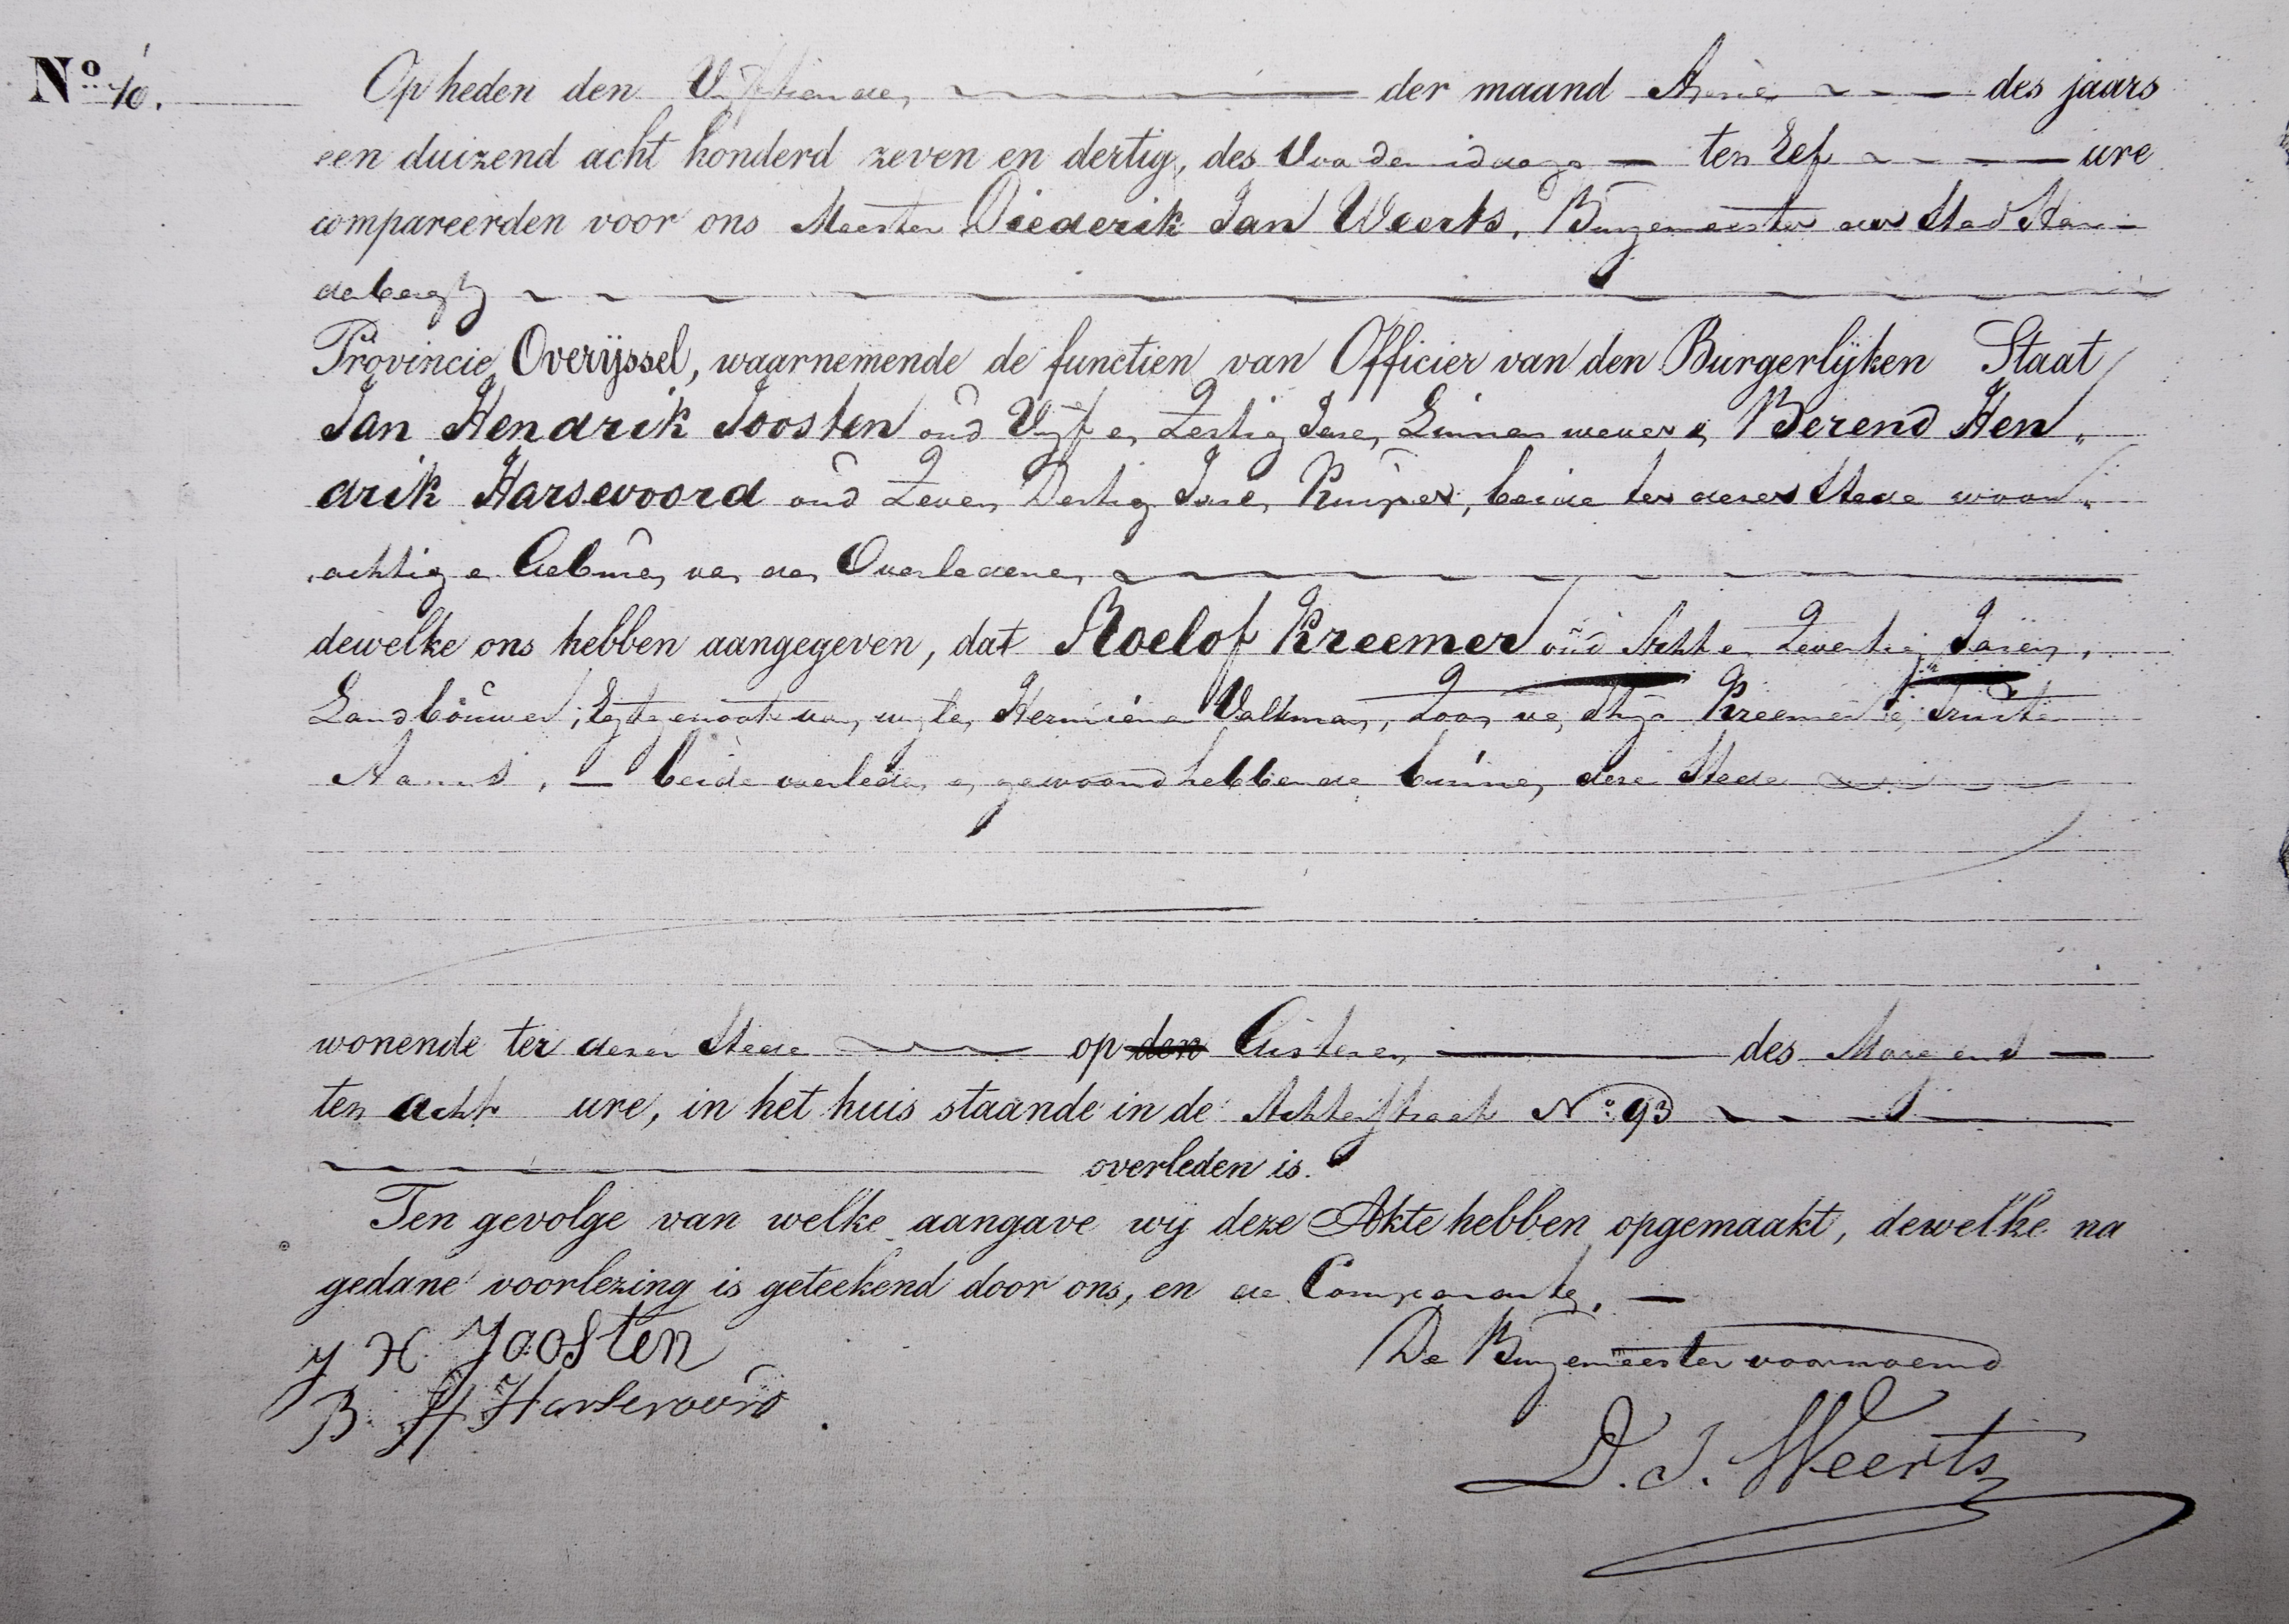 No. 10.
Op heden den Vijftienden der maand April des jaars
een duizend acht honderd zeven en dertig, des Voordemiddags ten Elf ure
compareerden voor ons Meester Diederik Jan Weerts, Burgemeester der Stad Har-
denbergh
Provincie Overijssel, waarnemende de functien van Officier van den Burgerlijken Staat
Jan Hendrik Joosten oud Vijf en Zestig Jaren Linnenwever en Berend Hen„
drik Harsevoord oud Zeven Dertig Jaren Kuiper, beide ter dezer Stede woon„
achtig en Geburen van den Overledenen
dewelke ons hebben aangegeven, dat Roelof Kreemer oud Acht en Zeventig Jaren,
Landbouwer, Egtgenoot van wijlen Hermiena Valkman, Zoon van Kreemer en
beide overleden en gewoond hebbende binnen deze Stede
wonende ter dezer Stede op den Gisteren des Morgens
ten acht ure, in het huis staande in de Achterstraat No. 93
overleden is.
Ten gevolge van welke aangave wij deze Akte hebben opgemaakt, dewelke na
gedane voorlezing is geteekend door ons, en de Comparanten.
J H. Joosten
B. H Harsevoord
De Burgemeester voornoemd
D. J. Weerts